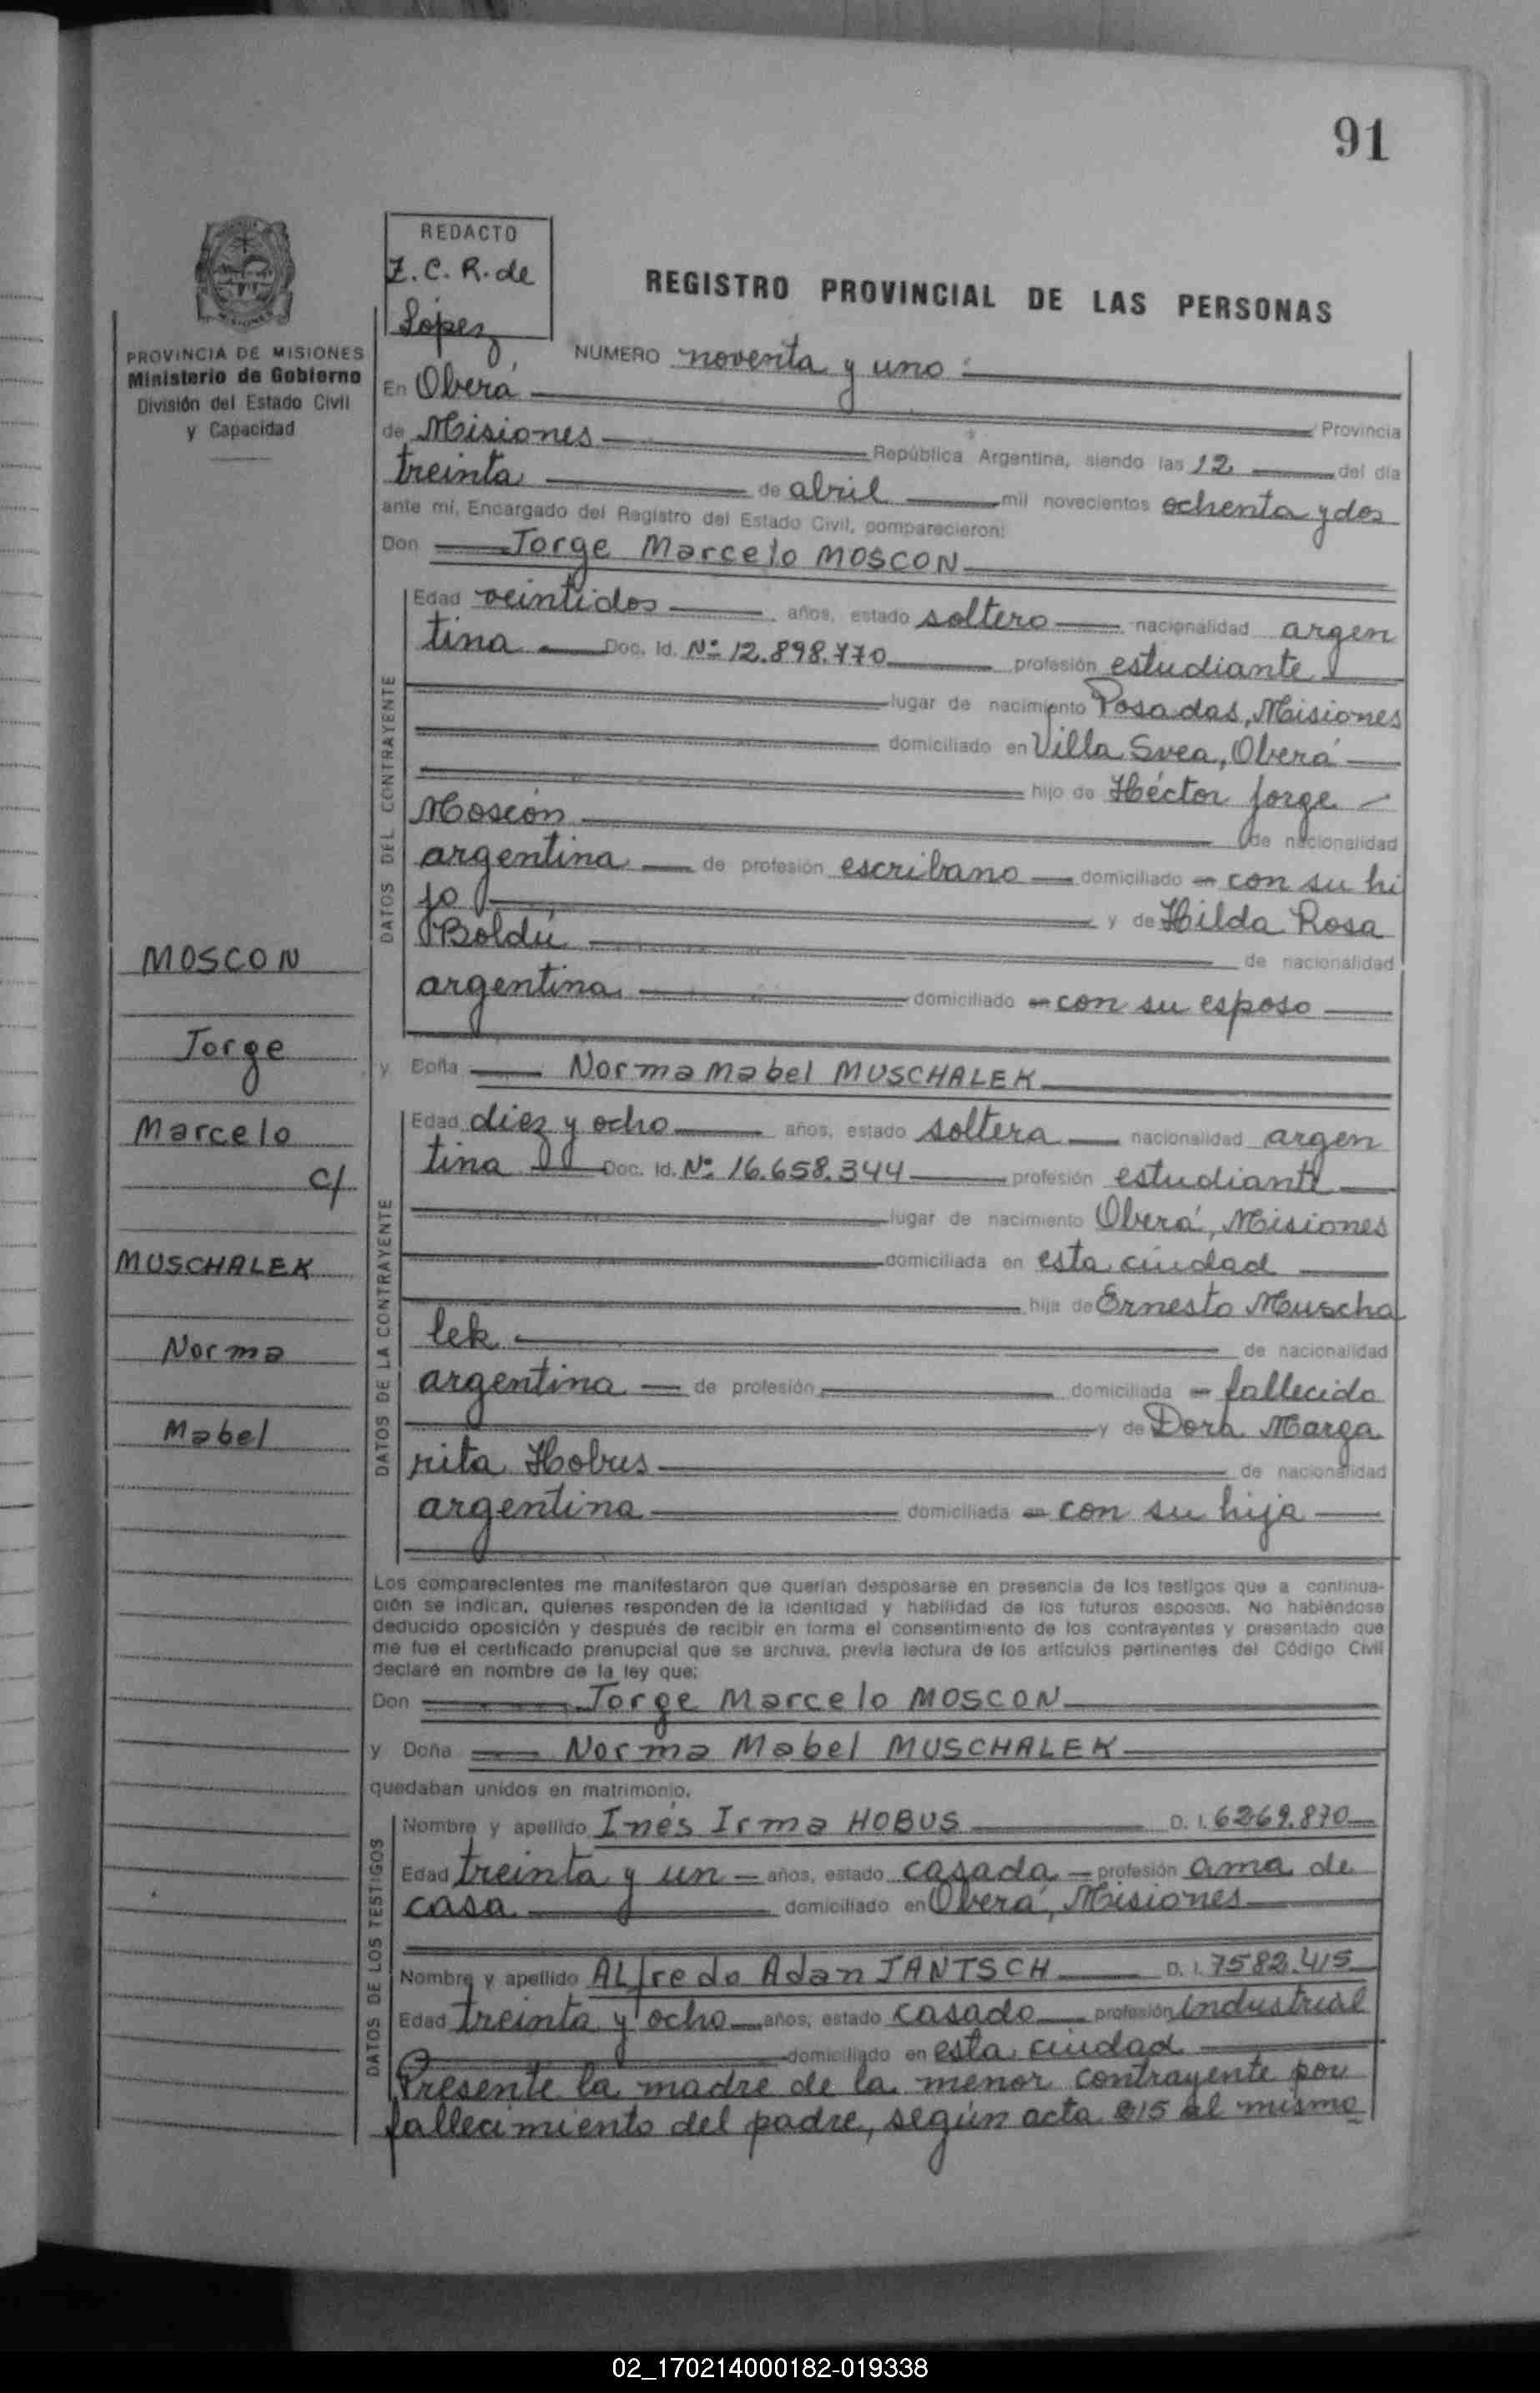 91
REDACTO
Z. C. R. de
López
REGISTRO PROVINCIAL DE LAS PERSONAS
PROVINCIA DE MISIONES
Ministerio de Gobierno
División del Estado Civil
y Capacidad
NUMERO noventa y uno
En Oberá
Provincia
de Misiones República Argentina, siendo las 12 del día
treinta de abril mil novecientos ochenta y dos
ante mí, Encargado del Registro del Estado Civil, comparecieron:
Don Jorge Marcelo MOSCON
DATOS DEL CONTRAYENTE
Edad veintidos años, estado soltero nacionalidad argen
tina Doc. Id. Nº 12.898.770 profesión estudiante
lugar de nacimiento Posadas, Misiones
domiciliado en Villa Svea, Oberá
hijo de Héctor Jorge
Moscón de nacionalidad
argentina de profesión escribano domiciliado en con su hi
jo y de Hilda Rosa
Boldú de nacionalidad
argentina domiciliado en con su esposo
MOSCON
Jorge
Marcelo
c/
MUSCHALEK
Norma
Mabel
y Doña Norma Mabel MUSCHALEK
DATOS DE LA CONTRAYENTE
Edad diez y ocho años, estado soltera nacionalidad argen
tina Doc. Id. Nº 16.658.344 profesión estudiante
lugar de nacimiento Oberá, Misiones
domiciliada en esta ciudad
hija de Ernesto Muscha
lek de nacionalidad
argentina de profesión domiciliada en fallecido
y de Dora Marga
rita Hobus de nacionalidad
argentina domiciliada en con su hija
Los comparecientes me manifestaron que querían desposarse en presencia de los testigos que a continua-
ción se indican, quienes responden de la identidad y habilidad de los futuros esposos. No habiéndose
deducido oposición y después de recibir en forma el consentimiento de los contrayentes y presentado que
me fue el certificado prenupcial que se archiva, previa lectura de los artículos pertinentes del Código Civil
declaré en nombre de la ley que:
Don Jorge Marcelo MOSCON
y Doña Norma Mabel MUSCHALEK
quedaban unidos en matrimonio.
DATOS DE LOS TESTIGOS
Nombre y apellido Inés Irma HOBUS D. I. 6269.870
Edad treinta y un años, estado casada profesión ama de
casa domiciliado en Oberá, Misiones
Nombre y apellido ALfredo Adan JANTSCH D. I. 7582.415
Edad treinta y ocho años, estado casado profesión industrial
domiciliado en esta ciudad
Presente la madre de la menor contrayente por
fallecimiento del padre, según acta 815 al mismo
02_170214000182-019338